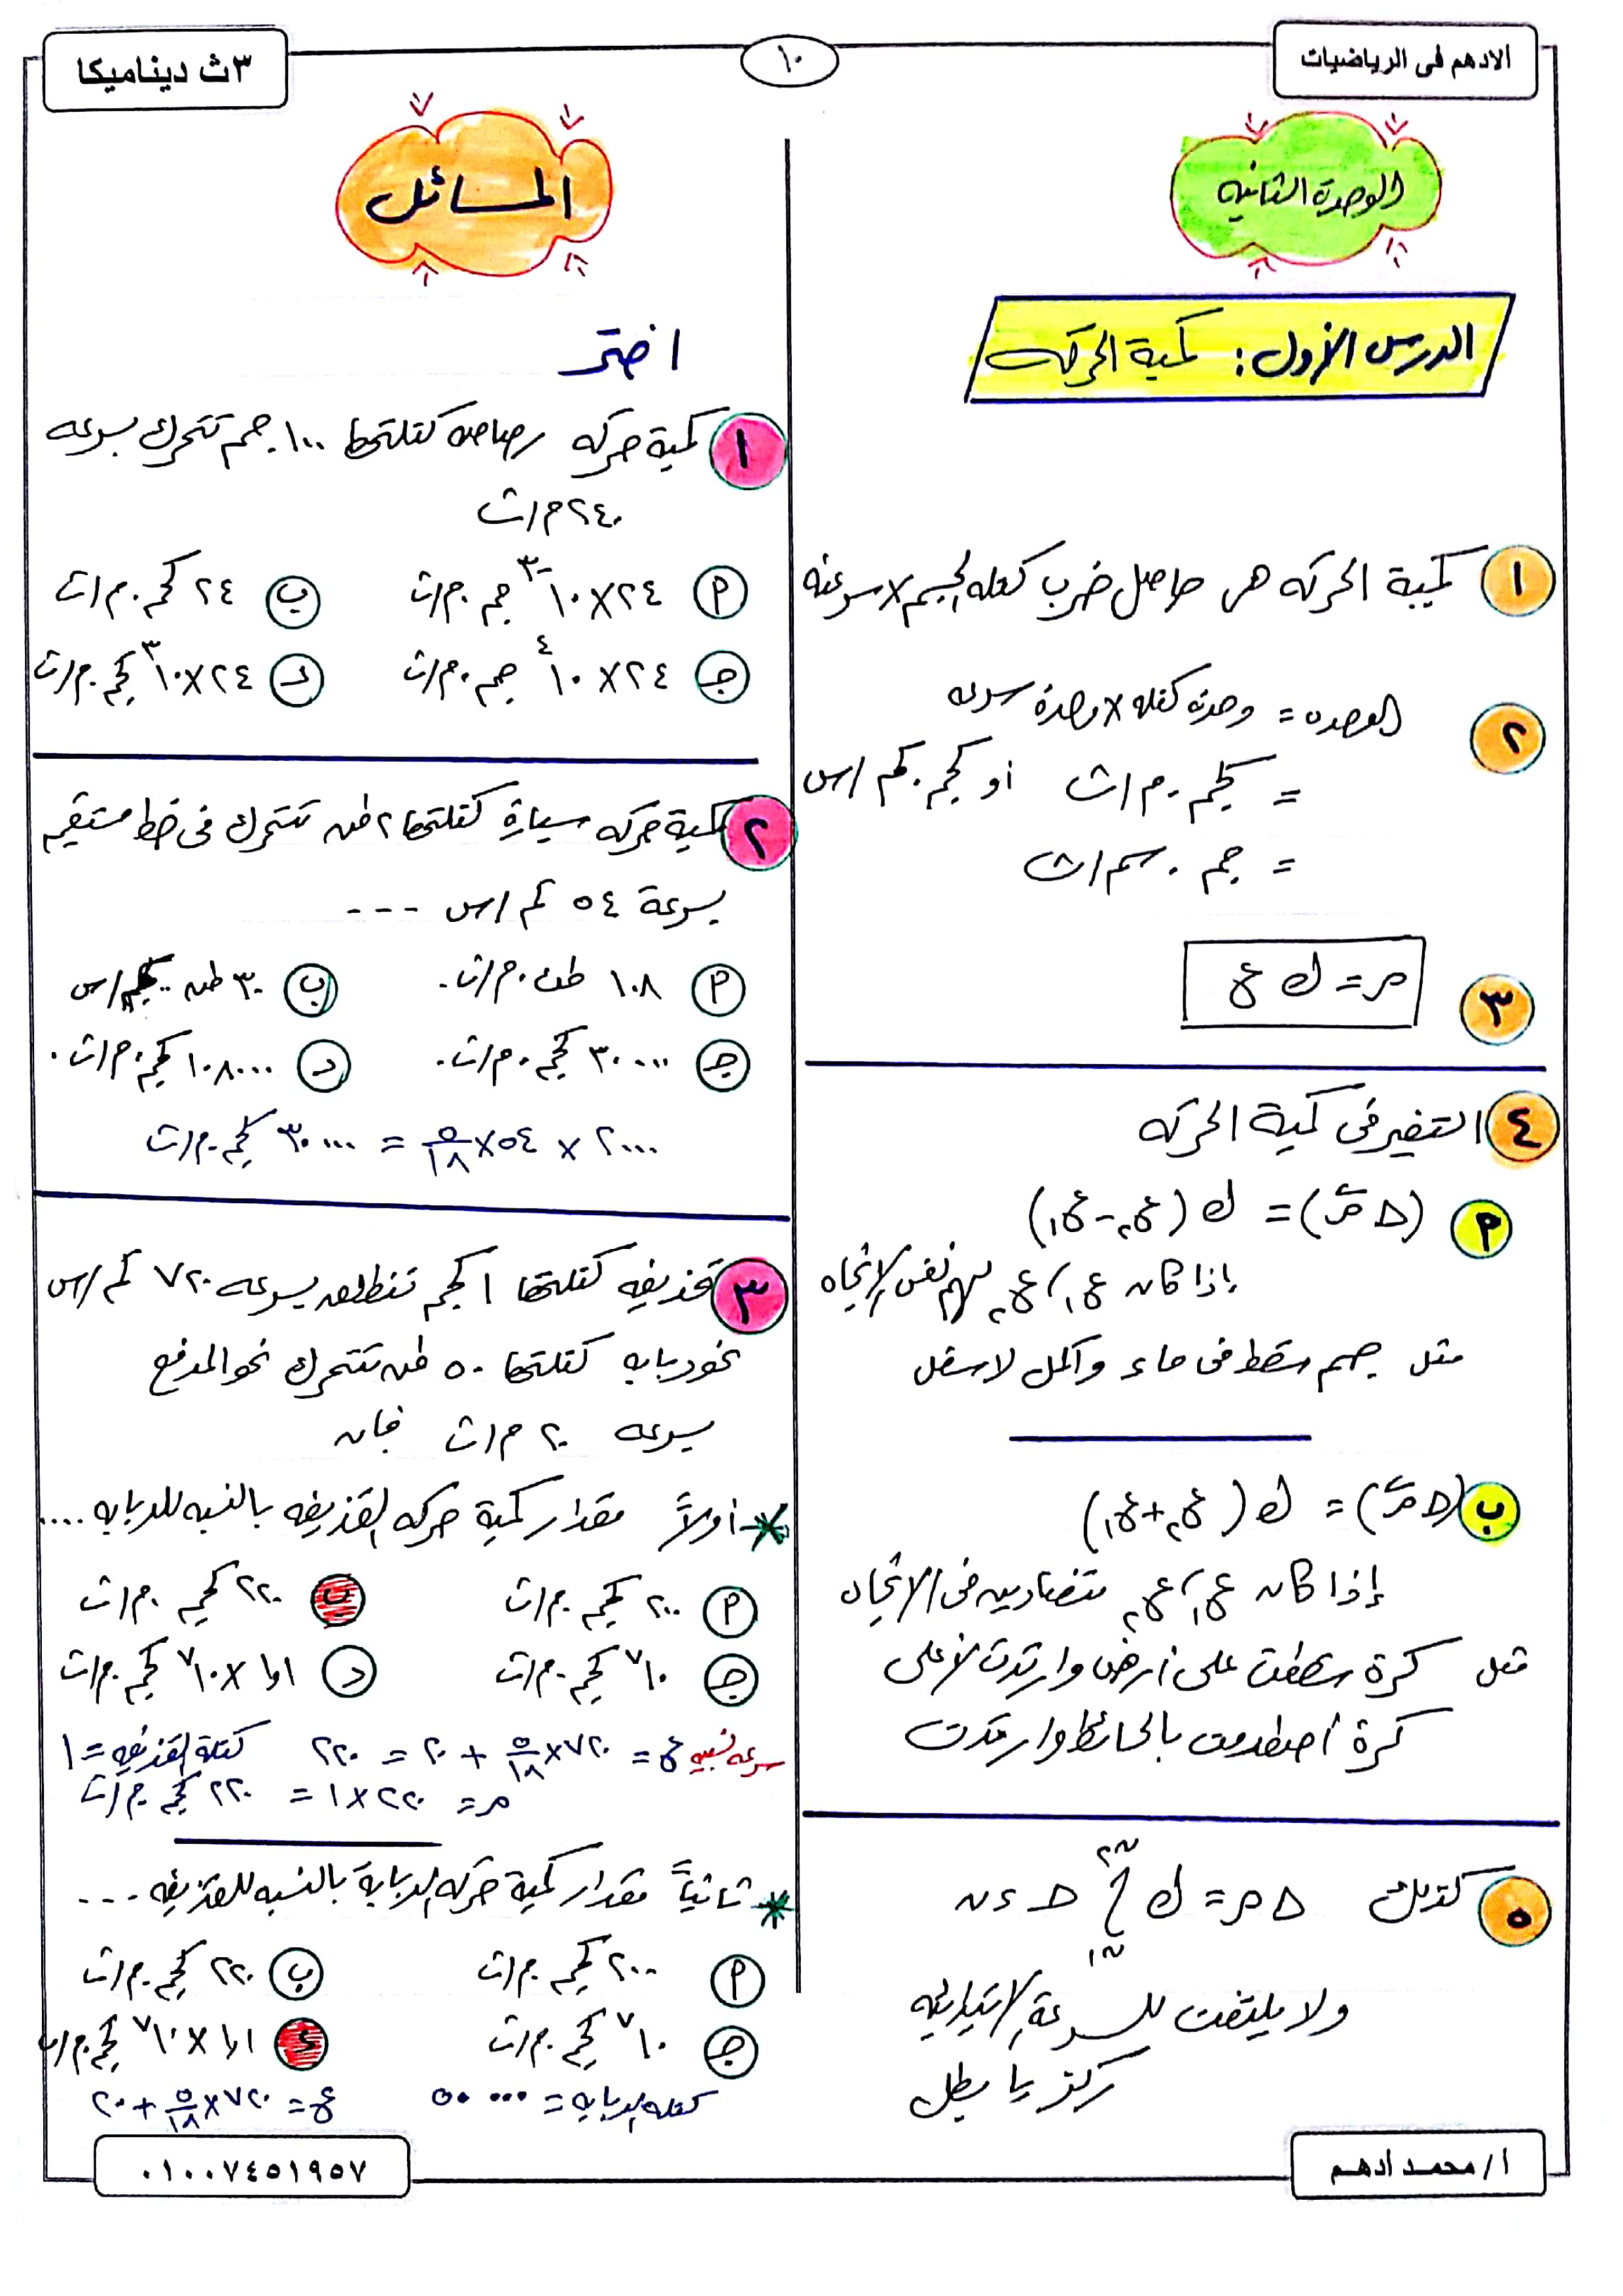 الادهم فى الرياضيات
١٠
٣ث ديناميكا
الوحدة الثانيه
الدرس الأول: كمية الحركه
١ كمية الحركه هى حاصل ضرب كتله الجسم × سرعته
٢ الوحده = وحدة كتله × وحدة سرعه
= كجم . م/ث أو كجم . كم/س
= جم . سم/ث
٣ م = ك ع
٤ التغير فى كمية الحركه
٢ (Δ م) = ك (ع٢ - ع١)
إذا كان ع١، ع٢ لهم نفس الإتجاه
مثل جسم سقط فى ماء وأكمل لاسفل
ب (Δ م) = ك (ع٢ + ع١)
إذا كان ع١، ع٢ متضادين فى الاتجاه
مثل كرة سقطت على أرض وارتدت لأعلى
كرة أصطدمت بالحائط وارتدت
٥ كذلك Δ م = ك ∫ ح ءن
ن٢
ن١
ولا يلتفت للسرعة الإبتدائيه
ركز يا بطل
المسائل
اختر
١ كمية حركه رصاصه كتلتها ١٠٠ جم تتحرك بسرعه
٢٤٠ م/ث
أ ٢٤ × ١٠⁻³ جم . م/ث
ب ٢٤ كجم . م/ث
جـ ٢٤ × ١٠⁴ جم . م/ث
ء ٢٤ × ١٠³ كجم . م/ث
٢ كمية حركه سيارة كتلتها ٢ طن تتحرك فى خط مستقيم
بسرعة ٥٤ كم/س ---
أ ١٠٨ طن . م/ث .
ب ٣٠ طن . كم/س
جـ ٣٠٠٠٠ كجم . م/ث .
د ١٠٨٠٠٠ كجم . م/ث .
٢٠٠٠ × ٥٤ × ٥/١٨ = ٣٠٠٠٠ كجم . م/ث
٣ قذيفه كتلتها ١ كجم تنطلق بسرعه ٧٢٠ كم/س
نحو دبابه كتلتها ٥٠ طن تتحرك نحو المدفع
بسرعه ٢٠ م/ث فإن
* أولاً مقدار كمية حركه القذيفه بالنسبه للدبابه ....
أ ٢٠٠ كجم . م/ث
ب ٢٢٠ كجم . م/ث
جـ ١٠⁷ كجم . م/ث
د ١٫١ × ١٠⁷ كجم . م/ث
سرعه نسبيه ع = ٧٢٠ × ٥/١٨ + ٢٠ = ٢٢٠ كتلة القذيفه = ١
م = ٢٢٠ × ١ = ٢٢٠ كجم . م/ث
* ثانياً مقدار كمية حركه الدبابة بالنسبه للقذيفه ---
أ ٢٠٠ كجم . م/ث
ب ٢٢٠ كجم . م/ث
جـ ١٠⁷ كجم . م/ث
ء ١٫١ × ١٠⁷ كجم . م/ث
كتله الدبابه = ٥٠٠٠٠ ع = ٧٢٠ × ٥/١٨ + ٢٠
أ/ محمد ادهم
٠١٠٠٧٤٥١٩٥٧